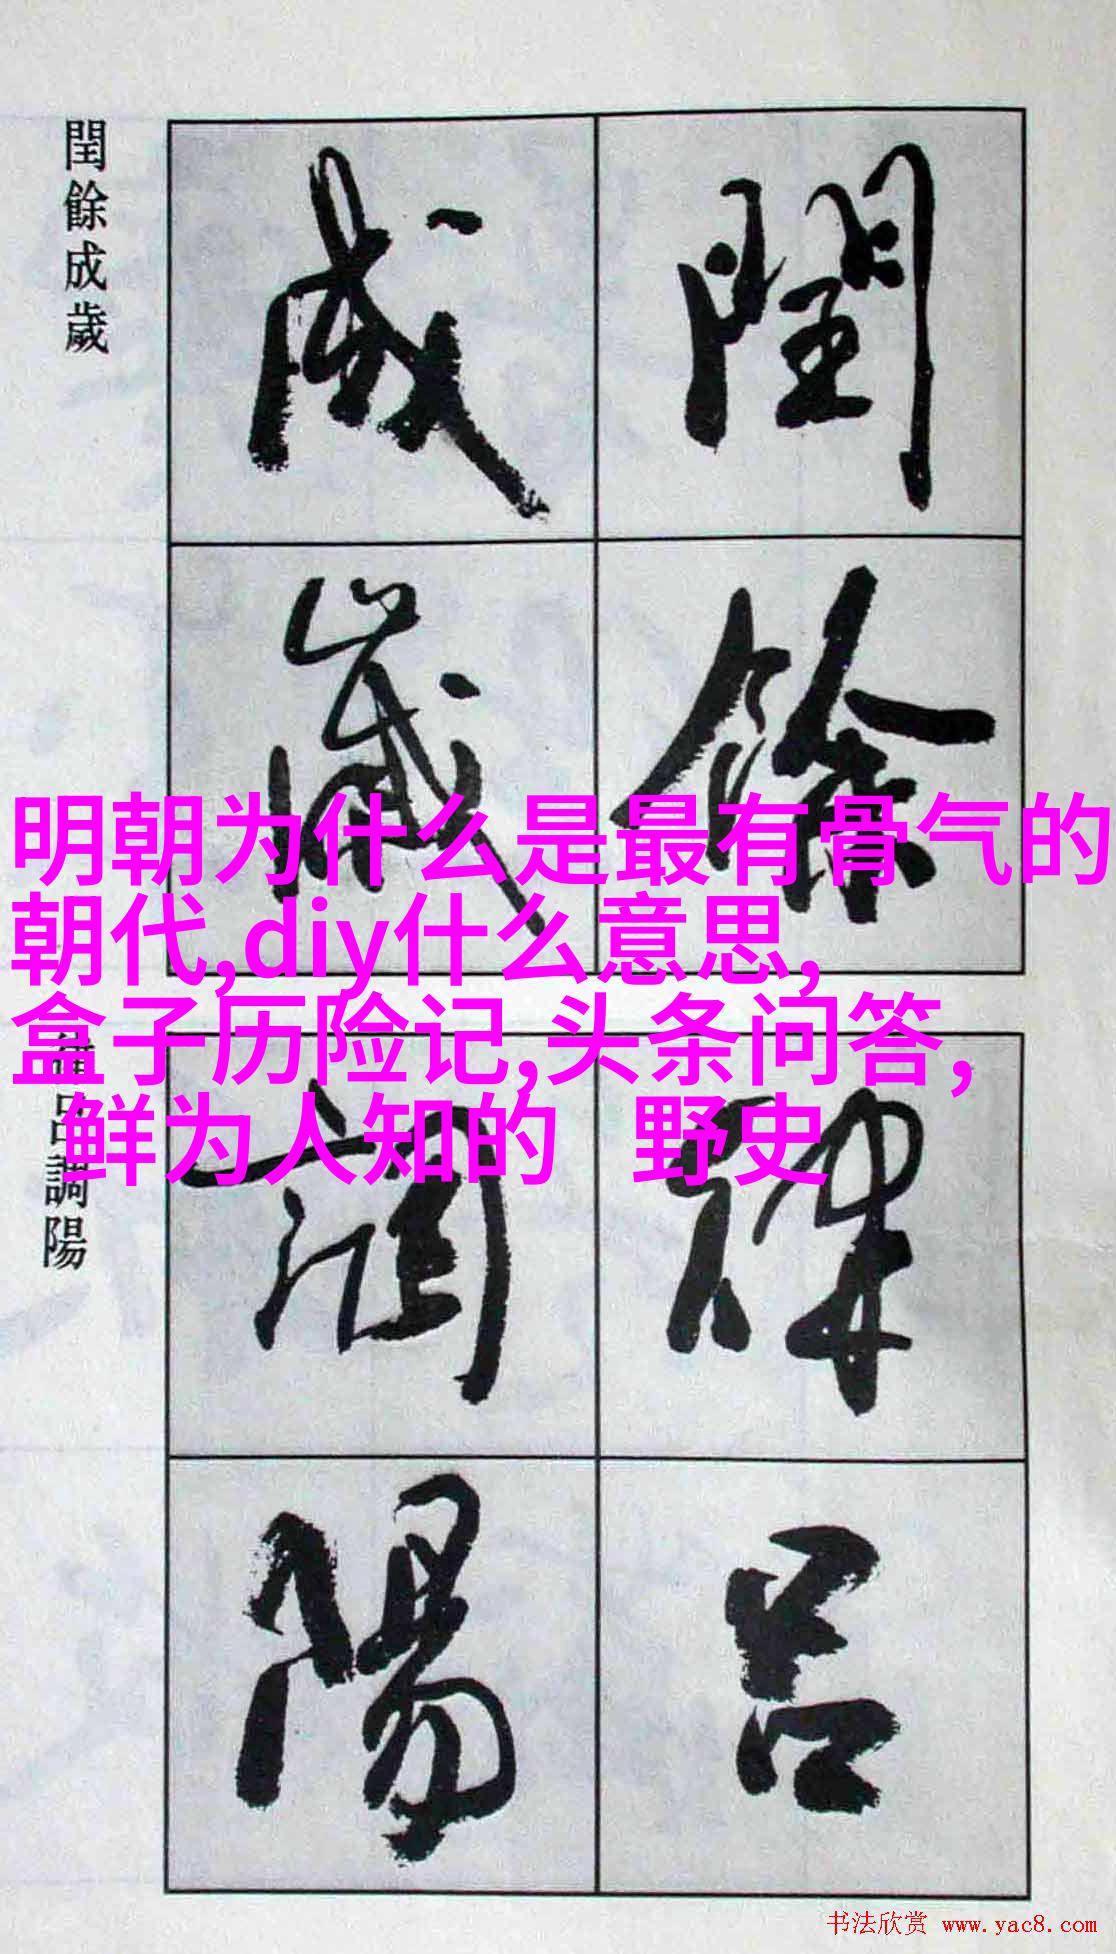 閏餘成歲
閏餘
成歲
明朝为什么是最有骨气的
朝代,diy什么意思,
盒子历险记,头条问答,
鲜为人知的 野史
呂調陽
律呂
調陽
书法欣赏 www.yac8.com